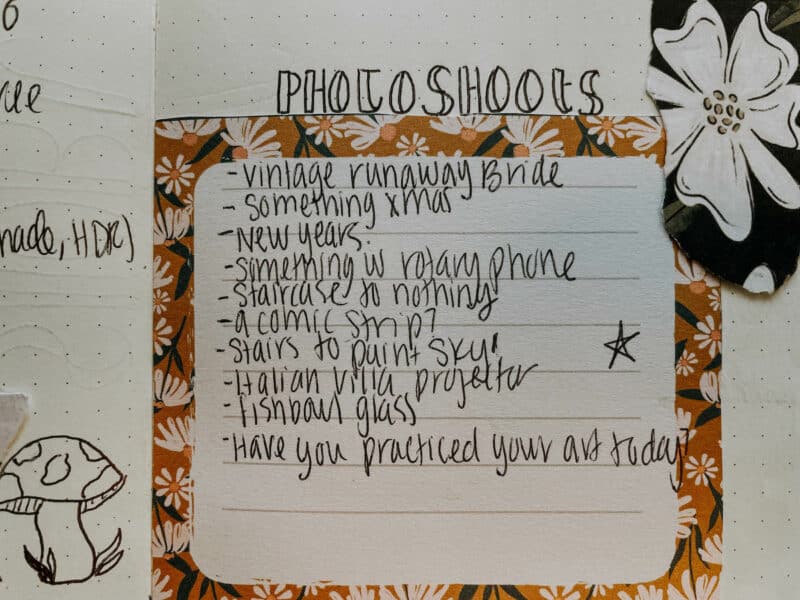 6
PHOTOSHOOTS
-Vintage runaway Bride
- Something xmas
-New years.
-Something w rotary phone
-Staircase to nothing
-a comic strip?
-Stairs to paint sky!
-Italian Villa projector
-Fishbowl glass
-Have you practiced your art today?
HDR)